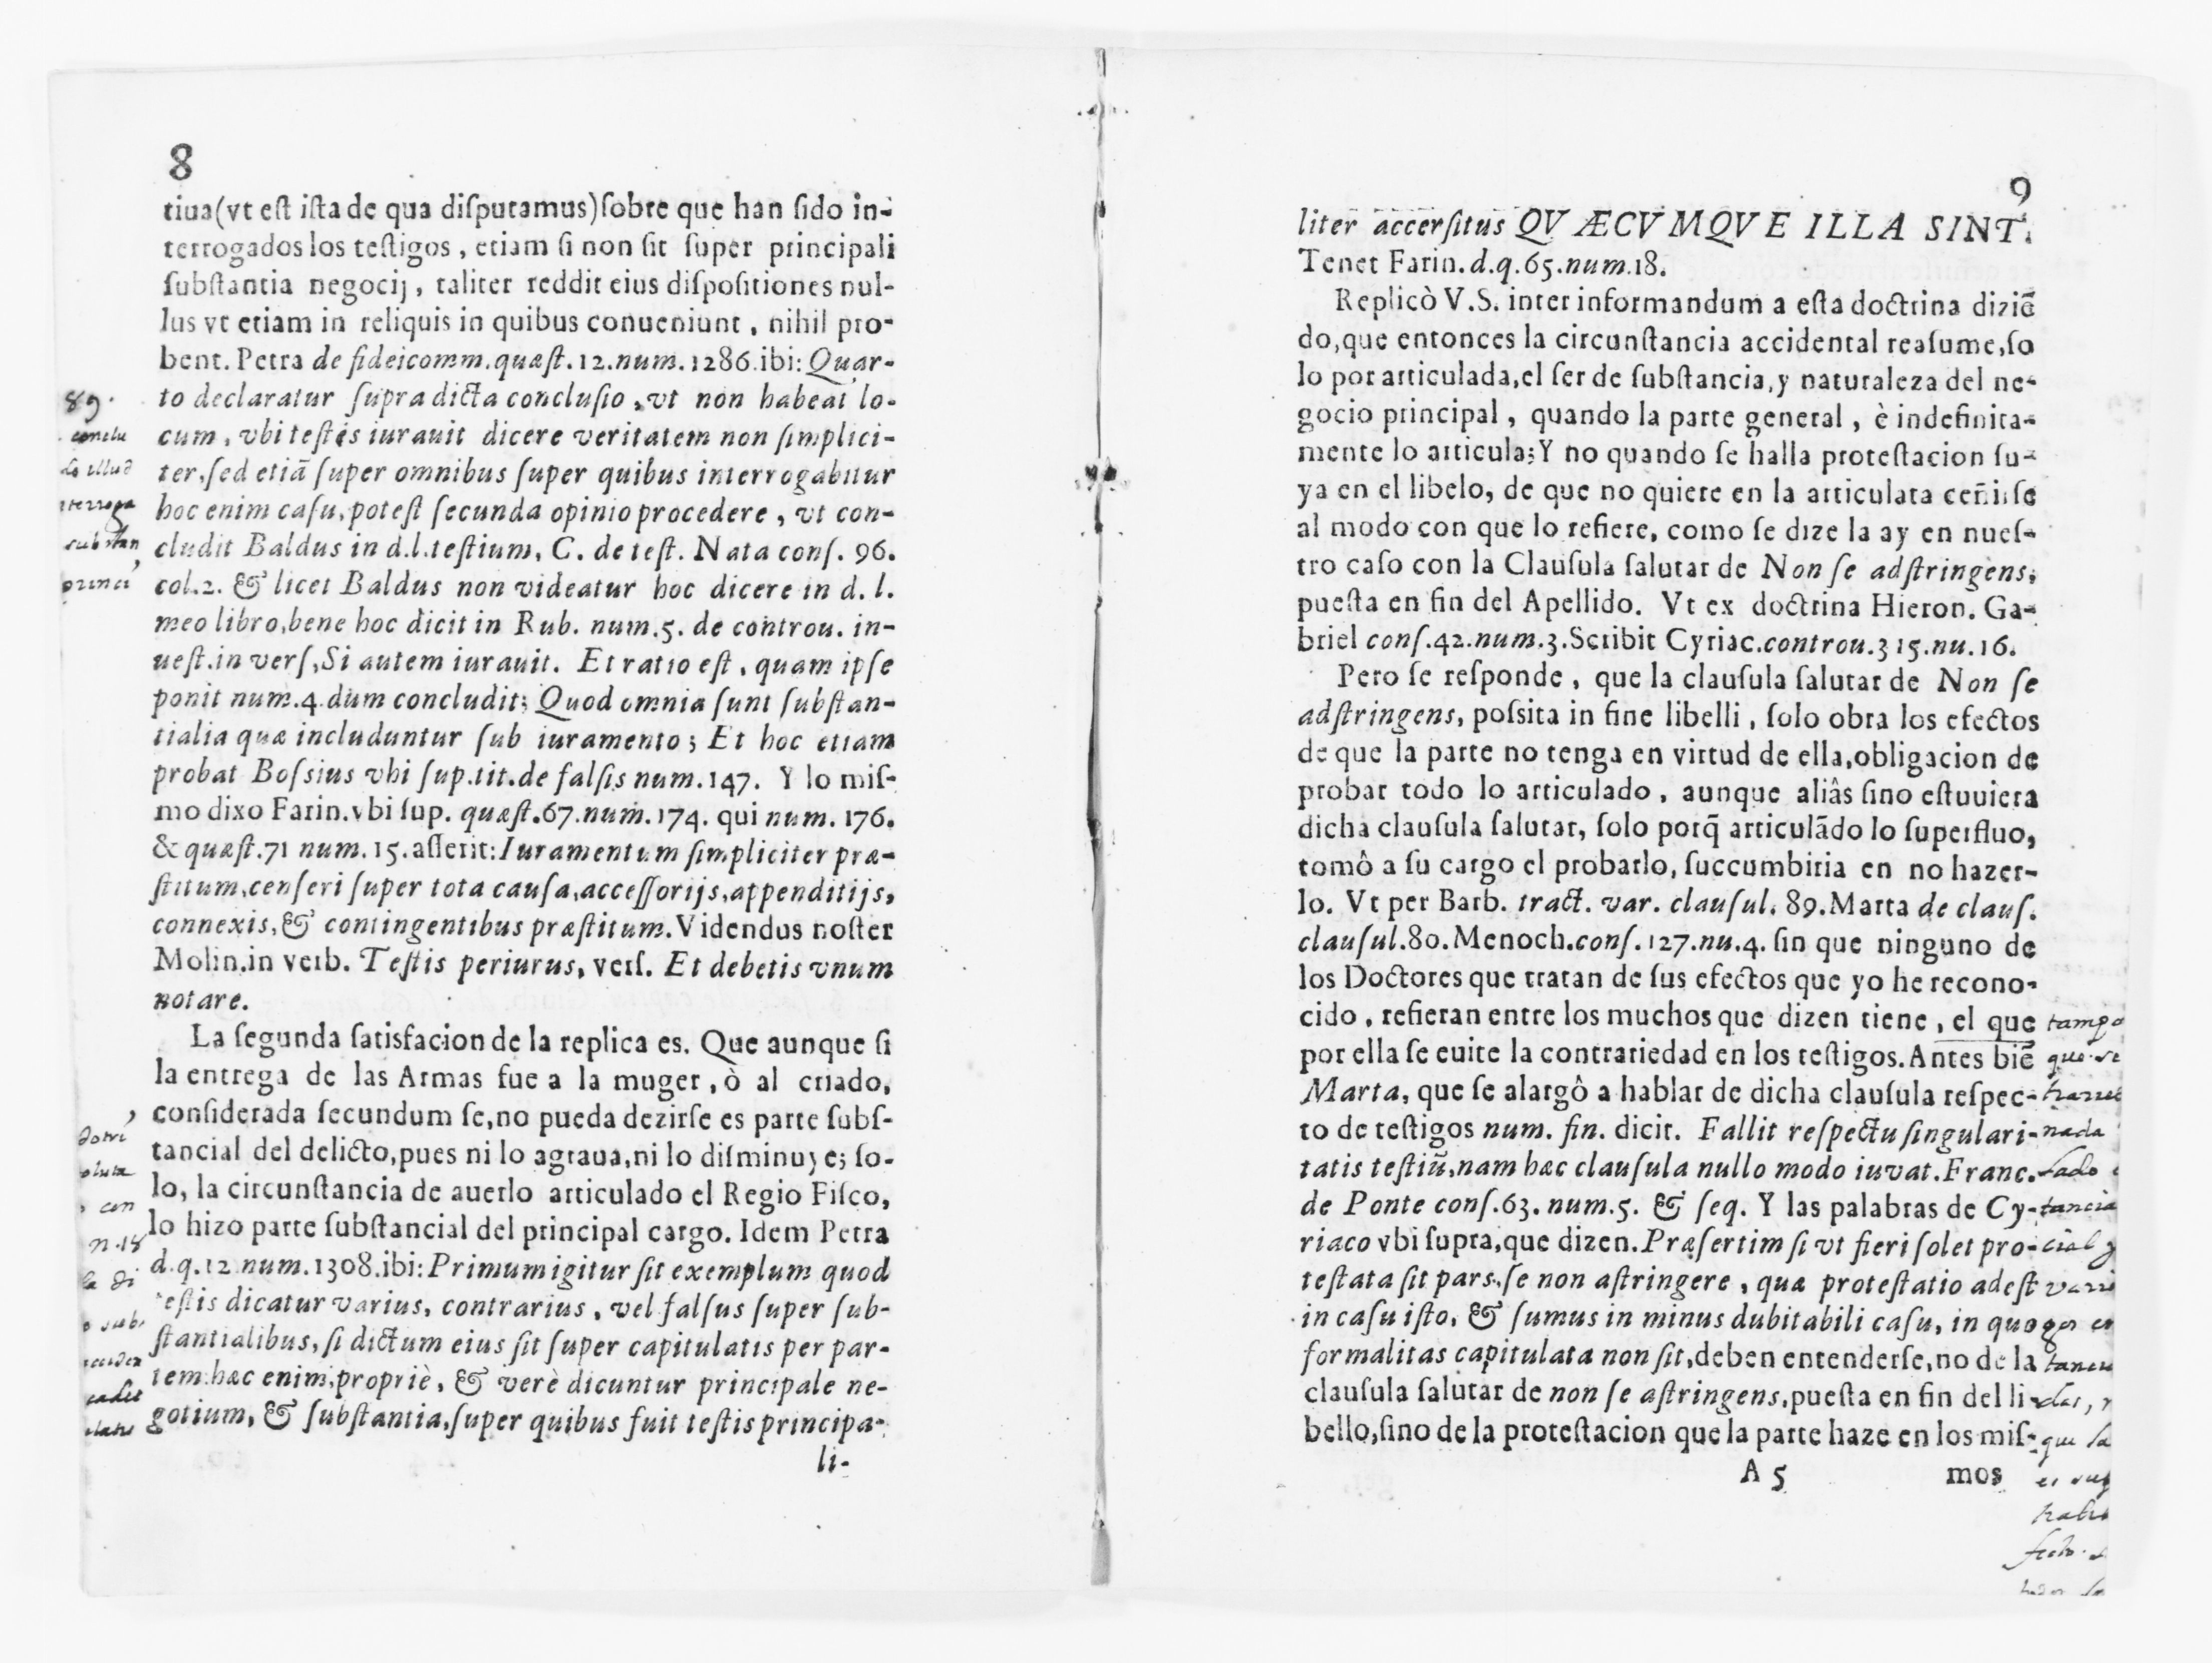 8
tiua(vt est ista de qua disputamus)sobre que han sido in-
terrogados los testigos, etiam si non sit super principali
substantia negocij, taliter reddit eius dispositiones nul-
lus vt etiam in reliquis in quibus conueniunt, nihil pro-
bent. Petra de fideicomm.quæst.12.num.1286.ibi: Quar-
to declaratur supra dicta conclusio, vt non habeat lo-
cum, vbi testes iurauit dicere veritatem non simplici-
ter, sed etiā super omnibus super quibus interrogabitur
hoc enim casu, potest secunda opinio procedere, vt con-
cludit Baldus in d.l.testium, C. de test. Nata cons. 96.
col.2. & licet Baldus non videatur hoc dicere in d. l.
meo libro, bene hoc dicit in Rub. num.5. de controu. in-
uest.in vers, Si autem iurauit. Et ratio est, quam ipse
ponit num.4.dum concludit; Quod omnia sunt substan-
tialia quæ includuntur sub iuramento; Et hoc etiam
probat Bossius vbi sup.tit.de falsis num.147. Y lo mis-
mo dixo Farin.vbi sup. quæst.67.num.174. qui num. 176.
& quæst.71 num. 15.asserit: Iuramentum simpliciter præ-
stitum, censeri super tota causa, accessorijs, appenditijs,
connexis, & contingentibus præstitum. Videndus noster
Molin.in verb. Testis periurus, vers. Et debetis vnum
notare.
La segunda satisfacion de la replica es. Que aunque si
la entrega de las Armas fue a la muger, ò al criado,
considerada secundum se, no pueda dezirse es parte subs-
tancial del delicto, pues ni lo agraua, ni lo disminuye; so-
lo, la circunstancia de auerlo articulado el Regio Fisco,
lo hizo parte substancial del principal cargo. Idem Petra
d.q.12 num.1308.ibi: Primum igitur sit exemplum quod
testis dicatur varius, contrarius, vel falsus super sub-
stantialibus, si dictum eius sit super capitulatis per par-
tem: hæc enim, propriè, & verè dicuntur principale ne-
gotium, & substantia, super quibus fuit testis principa-
li-
89.
conclu
illud
terroga
substan
princi
n.18
9
liter accersitus QVÆCVMQVE ILLA SINT.
Tenet Farin.d.q.65.num.18.
Replicò V.S. inter informandum a esta doctrina diziē
do, que entonces la circunstancia accidental reasume, so
lo por articulada, el ser de substancia, y naturaleza del ne-
gocio principal, quando la parte general, è indefinita-
mente lo articula; Y no quando se halla protestacion su-
ya en el libelo, de que no quiere en la articulata ceñirse
al modo con que lo refiere, como se dize la ay en nues-
tro caso con la Clausula salutar de Non se adstringens,
puesta en fin del Apellido. Vt ex doctrina Hieron. Ga-
briel cons.42.num.3.Scribit Cyriac.controu.315.nu.16.
Pero se responde, que la clausula salutar de Non se
adstringens, possita in fine libelli, solo obra los efectos
de que la parte no tenga en virtud de ella, obligacion de
probar todo lo articulado, aunque aliâs sino estuuiera
dicha clausula salutar, solo porq̄ articulādo lo superfluo,
tomô a su cargo el probarlo, succumbiria en no hazer-
lo. Vt per Barb. tract. var. clausul. 89.Marta de claus.
clausul.80.Menoch.cons.127.nu.4. sin que ninguno de
los Doctores que tratan de sus efectos que yo he recono-
cido, refieran entre los muchos que dizen tiene, el que
por ella se euite la contrariedad en los testigos. Antes biē
Marta, que se alargô a hablar de dicha clausula respec-
to de testigos num. fin. dicit. Fallit respectu singulari-
tatis testiū, nam hæc clausula nullo modo iuvat. Franc.
de Ponte cons.63. num.5. & seq. Y las palabras de Cy-
riaco vbi supra, que dizen. Præsertim si vt fieri solet pro-
testata sit pars, se non astringere, quæ protestatio adest
in casu isto, & sumus in minus dubitabili casu, in quo
formalitas capitulata non sit, deben entenderse, no de la
clausula salutar de non se astringens, puesta en fin del li-
bello, sino de la protestacion que la parte haze en los mis-
A 5 mos
tampo
que se
nada
tancia
que la